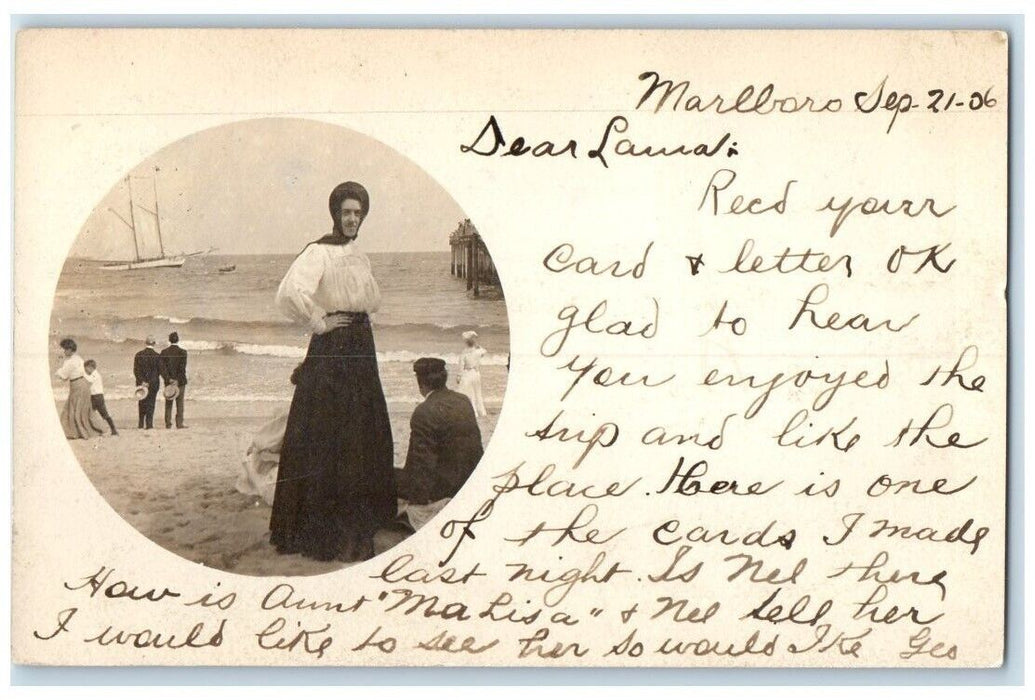 Marlboro Sep. 21-06
Dear Laura:
Recd your
card & letter OK
glad to hear
you enjoyed the
trip and like the
place. Here is one
of the cards I made
last night. Is Nel there
How is Aunt "Ma Lisa" & Nel tell her
I would like to see her so would Ike Geo